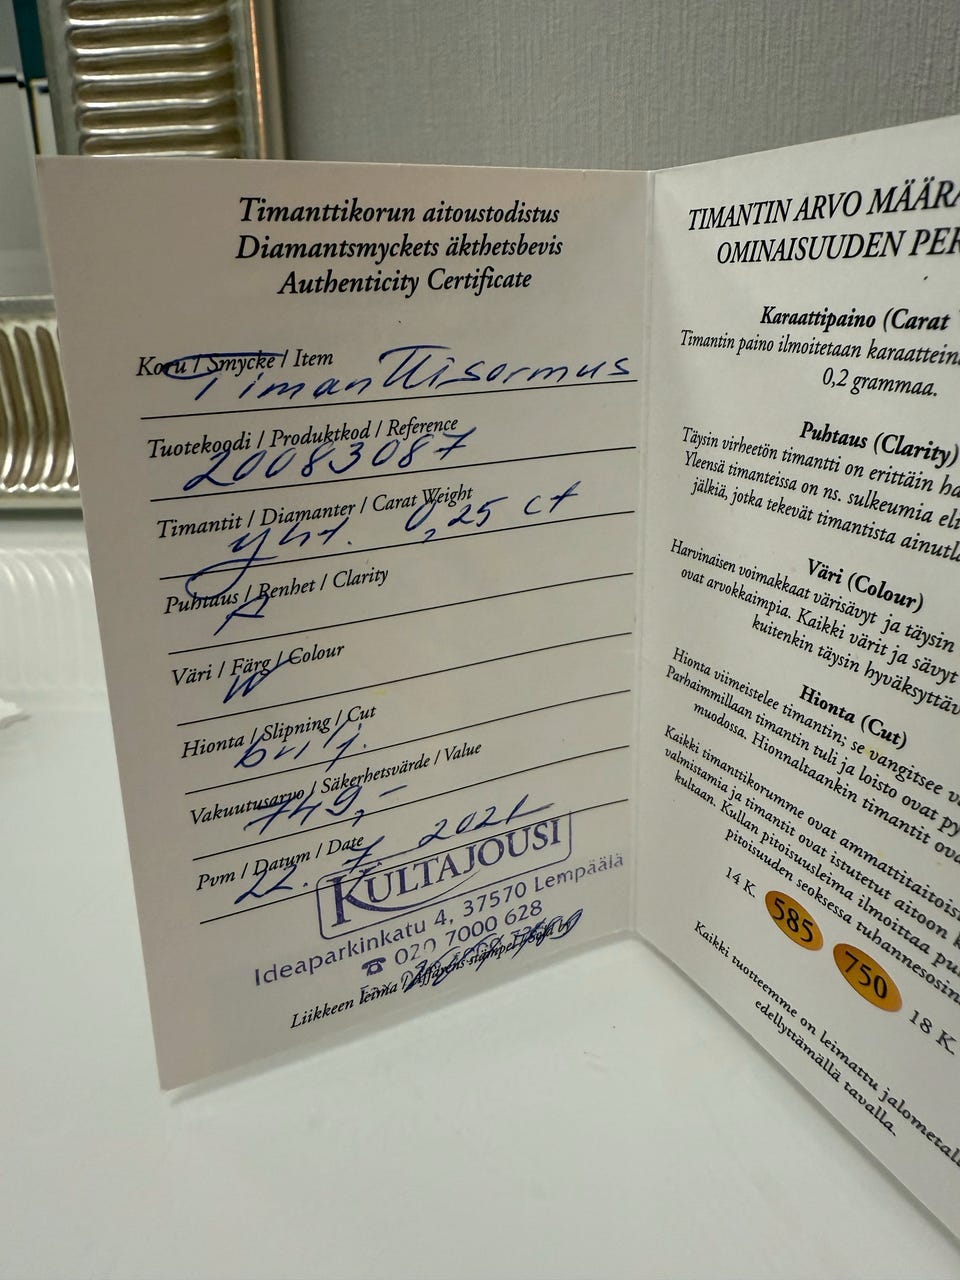 Timanttikorun aitoustodistus
Diamantsmyckets äkthetsbevis
Authenticity Certificate
Koru / Smycke / Item
Timanttisormus
Tuotekoodi / Produktkod / Reference
20083087
Timantit / Diamanter / Carat Weight
yht. 0,25 ct
Puhtaus / Renhet / Clarity
Väri / Färg / Colour
W
Hionta / Slipning / Cut
brilj.
Vakuutusarvo / Säkerhetsvärde / Value
749,-
Pvm / Datum / Date
22. 7. 2021
KULTAJOUSI
Ideaparkinkatu 4, 37570 Lempäälä
☎ 020 7000 628
Liikkeen leima / Affärens stämpel /
TIMANTIN ARVO MÄÄRÄ
OMINAISUUDEN PER
Karaattipaino (Carat
Timantin paino ilmoitetaan karaattein
0,2 grammaa.
Puhtaus (Clarity)
Täysin virheetön timantti on erittäin ha
Yleensä timanteissa on ns. sulkeumia eli
jälkiä, jotka tekevät timantista ainutla
Väri (Colour)
Harvinaisen voimakkaat värisävyt ja täysin
ovat arvokkaimpia. Kaikki värit ja sävyt
kuitenkin täysin hyväksyttäv
Hionta (Cut)
Hionta viimeistelee timantin; se vangitsee v
Parhaimmillaan timantin tuli ja loisto ovat py
muodossa. Hionnaltaankin timantit ova
Kaikki timanttikorumme ovat ammattitaitoist
valmistamia ja timantit ovat istutetut aitoon k
kultaan. Kullan pitoisuusleima ilmoittaa pu
pitoisuuden seoksessa tuhannesosin
14 K. 585 750 18 K.
Kaikki tuotteemme on leimattu jalometall
edellyttämällä tavalla.